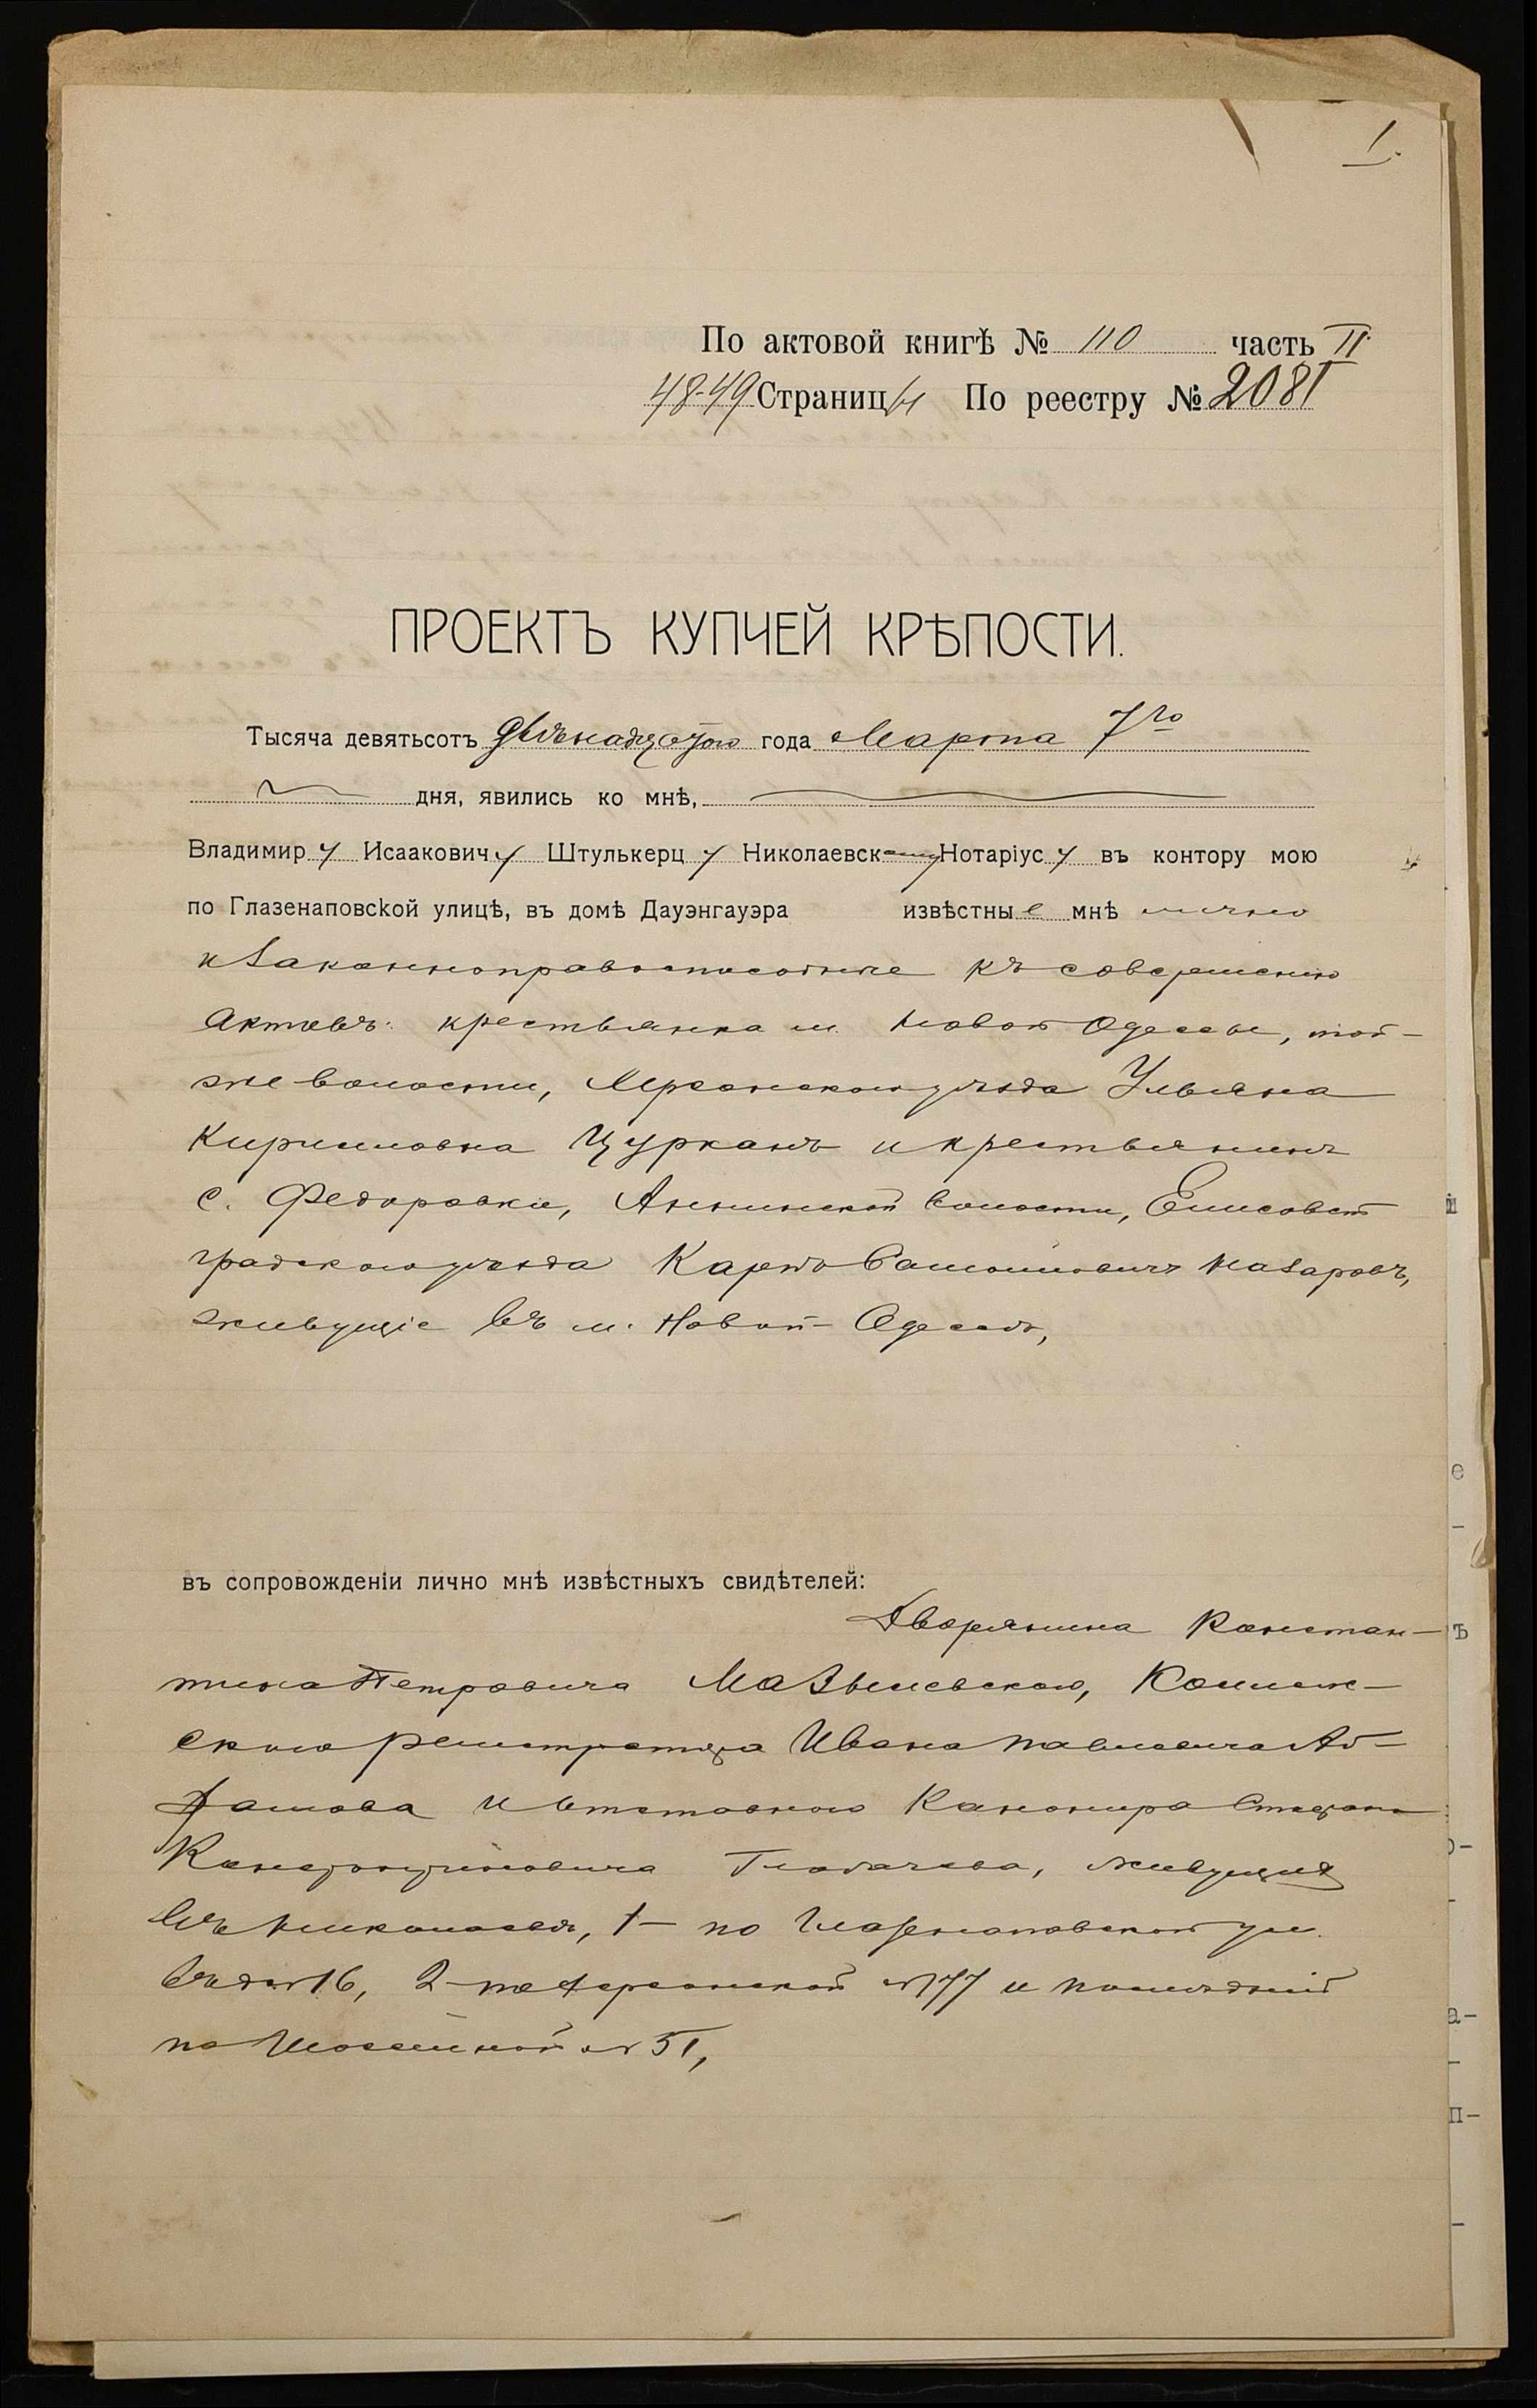 1.
По актовой книгѣ № 110 часть II.
48-49 Страницы По реестру № 2081
ПРОЕКТЪ КУПЧЕЙ КРѢПОСТИ.
Тысяча девятьсотъ двѣнадцатаго года Марта 7го
дня, явились ко мнѣ,
Владимиру Исааковичу Штулькерцу Николаевскому Нотаріусу въ контору мою
по Глазенаповской улицѣ, въ домѣ Дауэнгауэра извѣстные мнѣ лично
и законноправоспособные къ совершенію
актовъ: крестьянка м. Новой Одессы, той-
же волости, Херсонскаго уѣзда Ульяна
Кирилловна Цурканъ и крестьянинъ
с. Федоровки, Аннинской волости, Елисавет
градскаго уѣзда Карпъ Самойловичъ Назаровъ,
живущіе въ м. Новой-Одессѣ,
въ сопровожденіи лично мнѣ извѣстныхъ свидѣтелей:
Дворянина Констан-
тина Петровича Высшевскаго, Коллеж-
скаго регистратора Ивана Павловича Аб-
рамова и отставного Канонира Стефана
Глобачева, живущихъ
въ Николаевѣ, 1- по Глазенаповской ул.
въ д. №16, 2-по Херсонской №77 и послѣдній
по Шоссейной № 51,